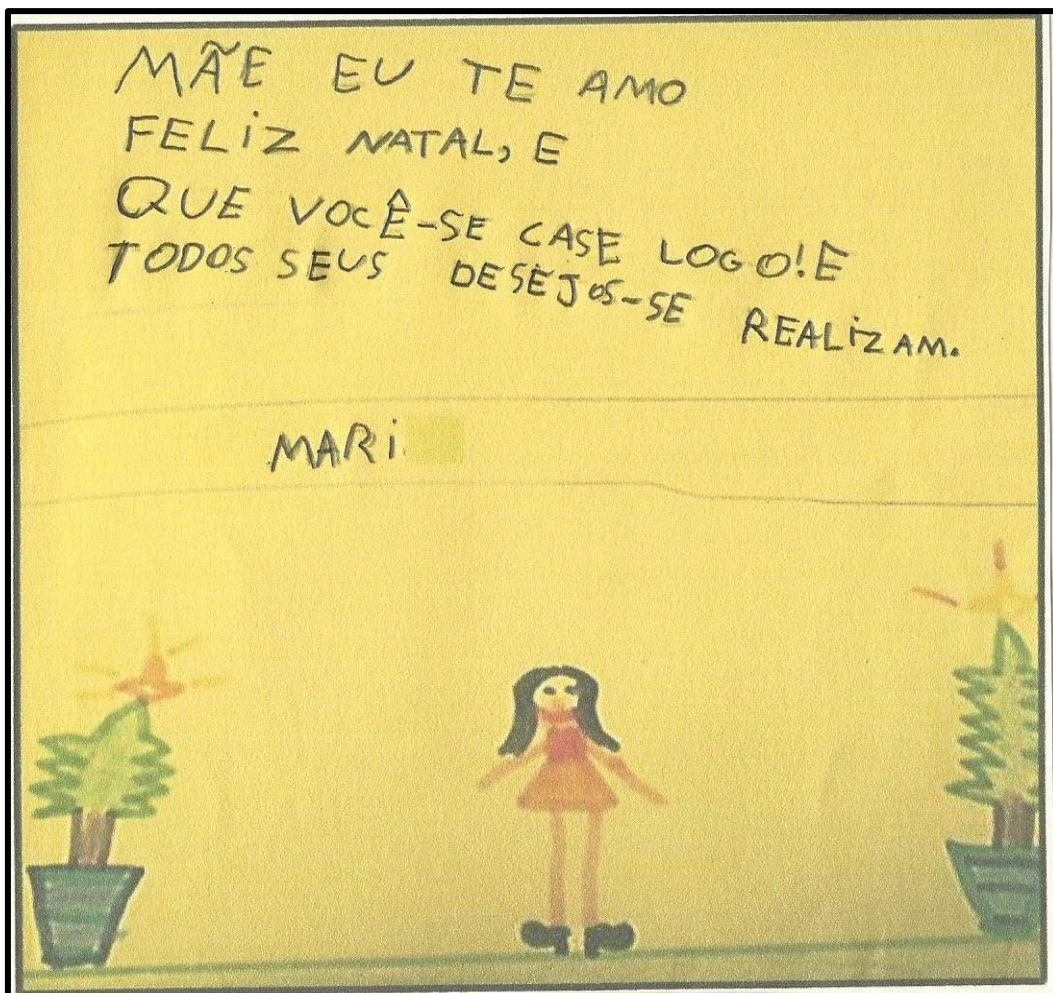 MÃE EU TE AMO
FELIZ NATAL, E
QUE VOCÊ-SE CASE LOGO!E
TODOS SEUS DESEJOS-SE REALIZAM.
MARI